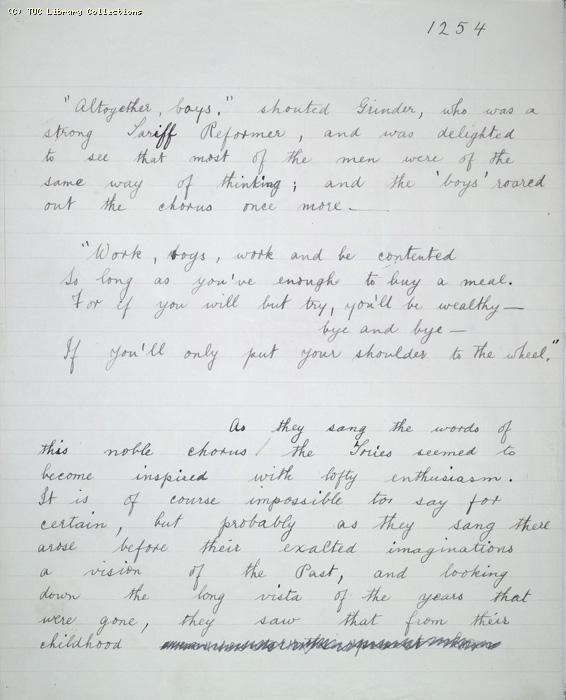 (C) TUC Library Collections
1254
"Altogether, boys." shouted Grinder, who was a
strong Tariff Reformer, and was delighted
to see that most of the men were of the
same way of thinking; and the 'boys' roared
out the chorus once more.—
"Work, boys, work and be contented
So long as you've enough to buy a meal.
For if you will but try, you'll be wealthy—
bye and bye—
If you'll only put your shoulder to the wheel."
As they sang the words of
this noble chorus / the Tories seemed to
become inspired with lofty enthusiasm.
It is of course impossible to say for
certain, but probably as they sang there
arose before their exalted imaginations
a vision of the Past, and looking
down the long vista of the years that
were gone, they saw that from their
childhood